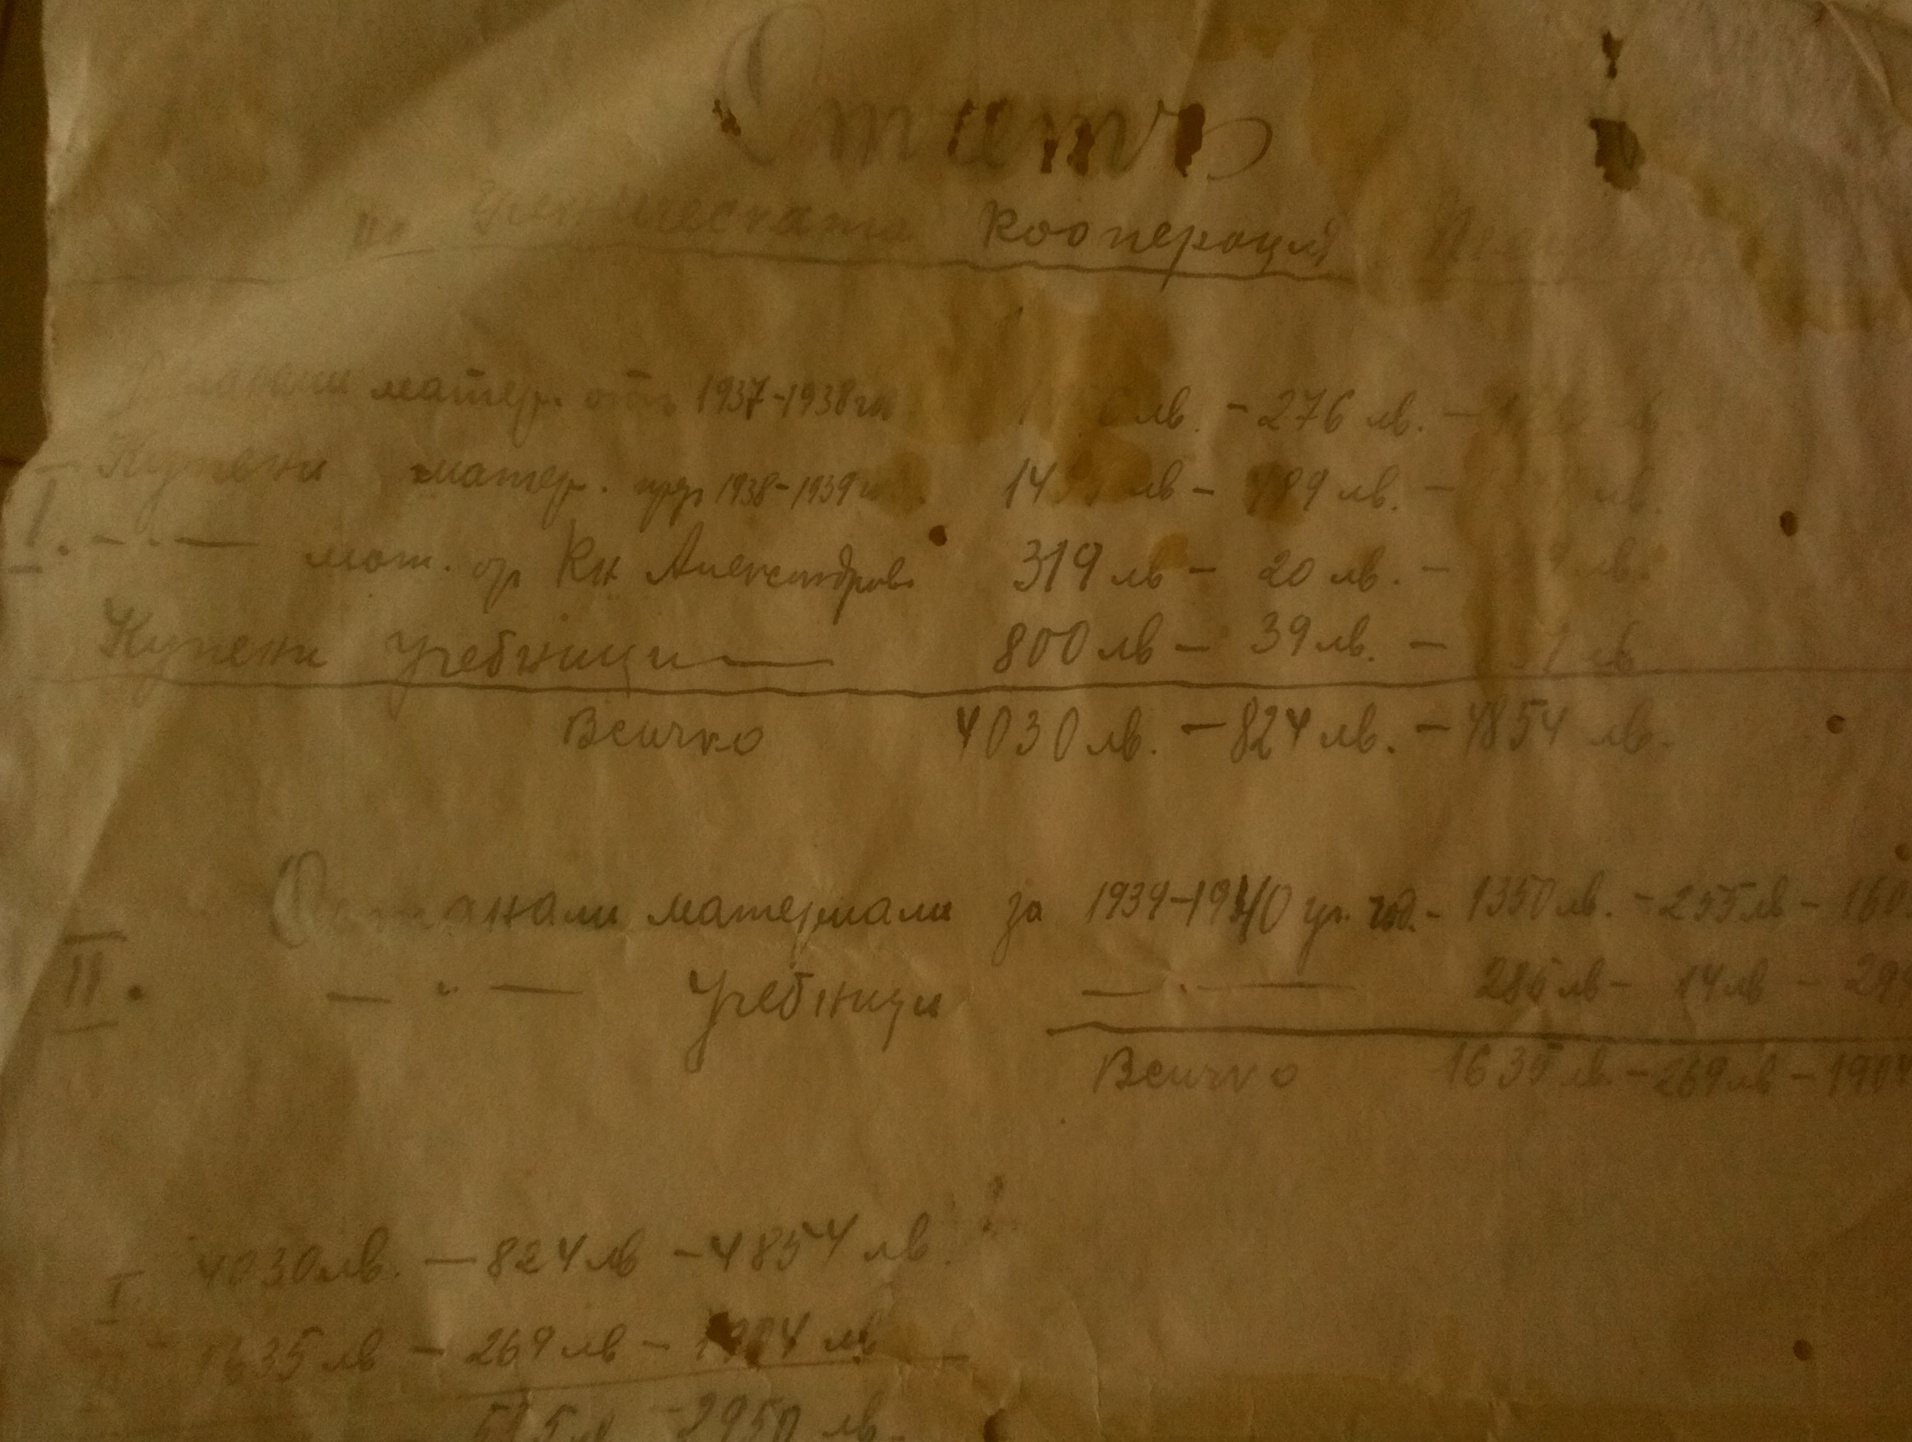 Отчетъ
на Ученическата кооперация
матер. отъ 1937-1938 лв. - 276 лв. -
Купени матер. през 1938-1939 лв - лв. - лв.
I. - " - мат. от Кн. Александров. 319 лв - 20 лв. - лв.
Купени учебници 800 лв - 39 лв. - лв
Всичко 4030 лв. - 824 лв. - 4854 лв.
Останали материали за 1939-1940 уч. год. - 1350 лв. - 255 лв -
II. - " - учебници - " - 285 лв - 14 лв -
Всичко 1635 лв - 269 лв -
I 4030 лв. - 824 лв - 4854 лв.
1635 лв - 269 лв - 1904 лв
- 2950 лв.